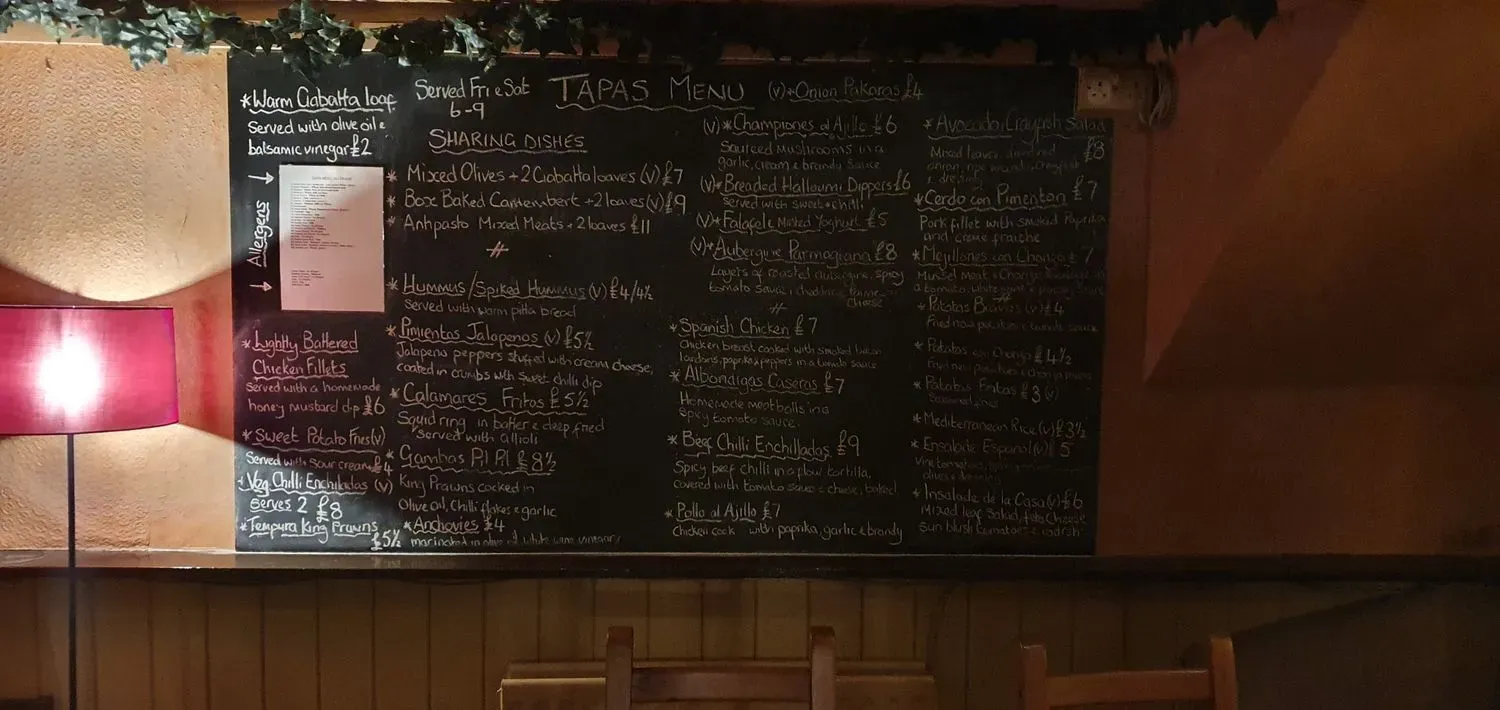 *Warm Ciabatta loaf
Served with olive oil &
balsamic vinegar £2
Allergens
*Lightly Battered
Chicken Fillets
Served with a homemade
honey mustard dip £6
*Sweet Potato Fries (v)
Served with sour cream £4
*Veg Chilli Enchiladas (v)
Serves 2 £8
*Tempura King Prawns
£5½
Served Fri & Sat
6-9
TAPAS MENU
SHARING DISHES
* Mixed Olives + 2 Ciabatta loaves (v) £7
* Box Baked Camembert + 2 loaves (v) £9
* Antipasto Mixed Meats + 2 loaves £11
#
*Hummus/Spiked Hummus (v) £4/4½
Served with warm pitta bread
*Pimientos Jalapenos (v) £5½
Jalapeno peppers stuffed with cream cheese,
coated in crumbs with sweet chilli dip
*Calamares Fritos £5½
Squid ring in batter & deep fried
Served with allioli
*Gambas Pil Pil £8½
King Prawns cooked in
Olive oil, Chilli flakes & garlic
*Anchovies £4
marinated in olive oil, white wine vinegar
(v)*Onion Pakoras £4
(v)*Championes al Ajillo £6
Sauteed Mushrooms in a
garlic, cream & brandy sauce
(v)*Breaded Halloumi Dippers £6
Served with sweet chilli
(v)*Falafale Minted Yoghurt £5
(v)*Aubergine Parmagiana £8
Layers of roasted aubergine, spicy
tomato sauce, cheddar
cheese
#
*Spanish Chicken £7
Chicken breast cooked with smoked bacon
lardons, paprika, peppers in a tomato sauce
*Albondigas Caseras £7
Homemade meatballs in a
spicy tomato sauce.
*Beef Chilli Enchilladas £9
Spicy beef chilli in a flour tortilla,
covered with tomato sauce & cheese, baked
*Pollo al Ajillo £7
Chicken cook with paprika, garlic & brandy
*Avocado & Crayfish Salad
£8
Mixed leaves,
dressing
*Cerdo con Pimenton £7
Pork fillet with smoked Paprika
and creme fraiche
*Mejillones con Chorizo £7
Mussel meat & Chorizo
a tomato, white wine
*Patatas Bravas (v) £4
Fried new potatoes & tomato sauce
*Patatas con Chorizo £4½
*Patatas Fritas £3 (v)
Seasoned fries
*Mediterranean Rice (v) £3½
*Ensalade Espanol (v) £5
Vine tomatoes,
olives & dressing
*Insalade de la Casa (v) £6
Mixed leaf salad, feta cheese
sun blush tomatoes & radish